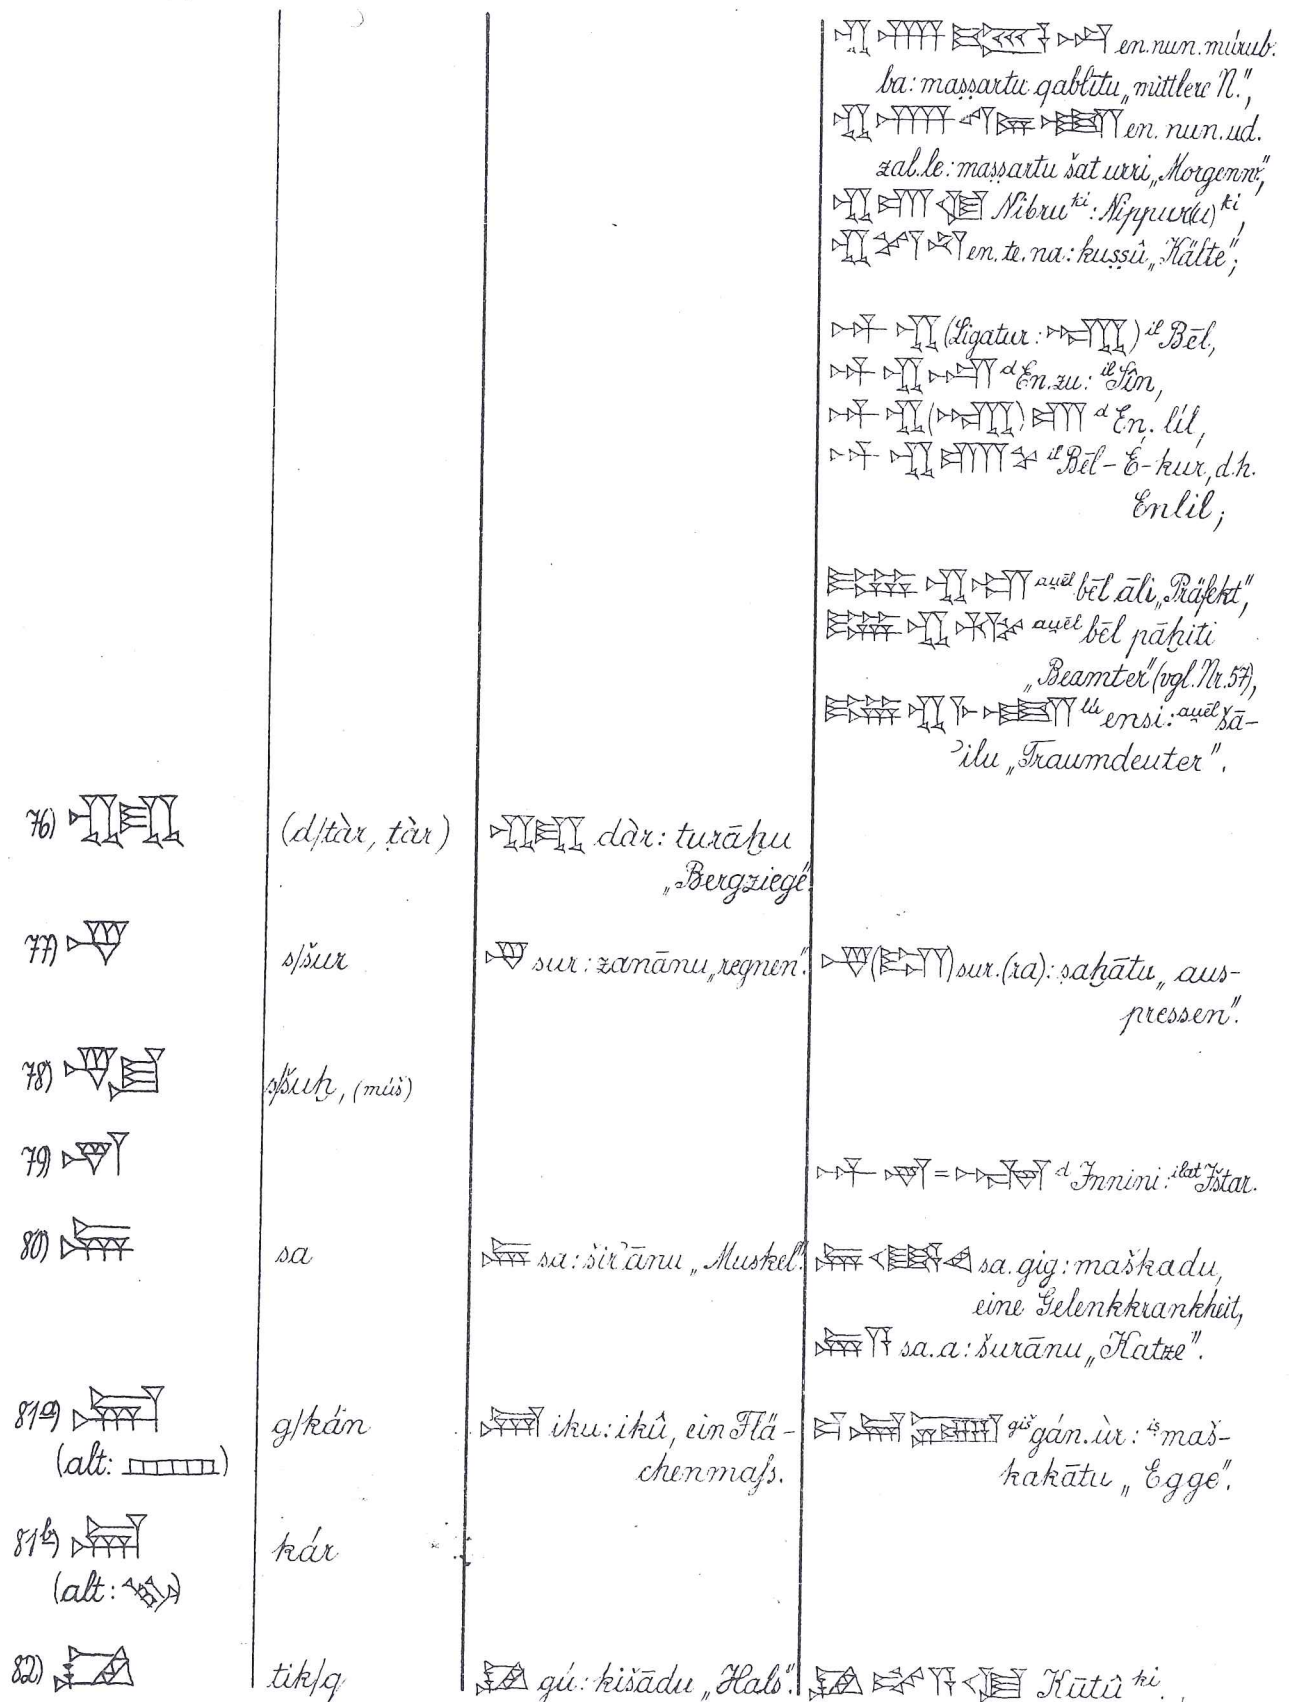 𒂗 𒉣 en.nun.múrub.
ba: maṣṣartu qablītu „mittlere N.",
𒂗 𒉣 𒌓 𒉌 𒇷 en.nun.ud.
zal.le: maṣṣartu šat urri „Morgennw",
𒂗 𒆤 𒆠 Nibru ki: Nippur(u) ki,
𒂗 𒋼 𒈾 en.te.na: kuṣṣû „Kälte";
𒀭 𒂗 (Ligatur: 𒀭𒂗) il Bēl,
𒀭 𒂗 𒍪 d En.zu: il Sîn,
𒀭 𒂗 (𒀭𒂗) 𒆤 d En.líl,
𒀭 𒂗 𒂍 𒆳 il Bēl-É-kur, d.h.
Enlil;
𒇽 𒂗 𒌷 au̯ēl bēl āli „Präfekt",
𒇽 𒂗 𒉆 au̯ēl bēl pāḫiti
„Beamter" (vgl. Nr. 57),
𒇽 𒂗 𒈨 𒇷 lú ensi: au̯ēl šā-
ʾilu „Traumdeuter".
76) 𒁰 (d/tàr, ṭàr) 𒁰 dàr: turāḫu
„Bergziege".
77) 𒋩 s/šur 𒋩 sur: zanānu „regnen". 𒋩 (𒊏) sur.(ra): ṣaḫātu „aus-
pressen".
78) 𒈽 s/šuḫ, (múš)
79) 𒈹 𒀭 𒈹 = 𒀭𒈹 d Innini: ilat Ištar.
80) 𒊓 sa 𒊓 sa: širʾānu „Muskel". 𒊓 𒍼 sa.gig: maškadu,
eine Gelenkkrankheit,
𒊓 𒀀 sa.a: šurānu „Katze".
81a) 𒃷 g/kán 𒃷 iku: ikû, ein Flä- 𒄑 𒃷 𒌫 giš gán.ùr: iṣ maš-
(alt: ) chenmaſs. kakātu „Egge".
81b) 𒃸 kár
(alt: )
82) 𒄘 tik/q 𒄘 gú: kišādu „Hals". 𒄘 𒂃 𒀀 𒆠 Kūtû ki,